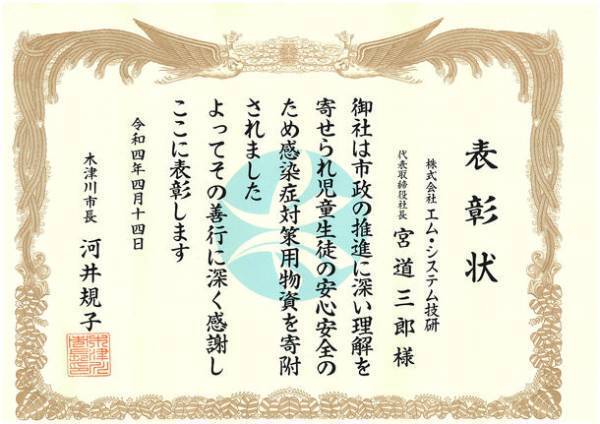 表彰状
株式会社 エム・システム技研
代表取締役社長 宮道三郎様
御社は市政の推進に深い理解を
寄せられ児童生徒の安心安全の
ため感染症対策用物資を寄附
されました
よってその善行に深く感謝し
ここに表彰します
令和四年四月十四日
木津川市長 河井規子